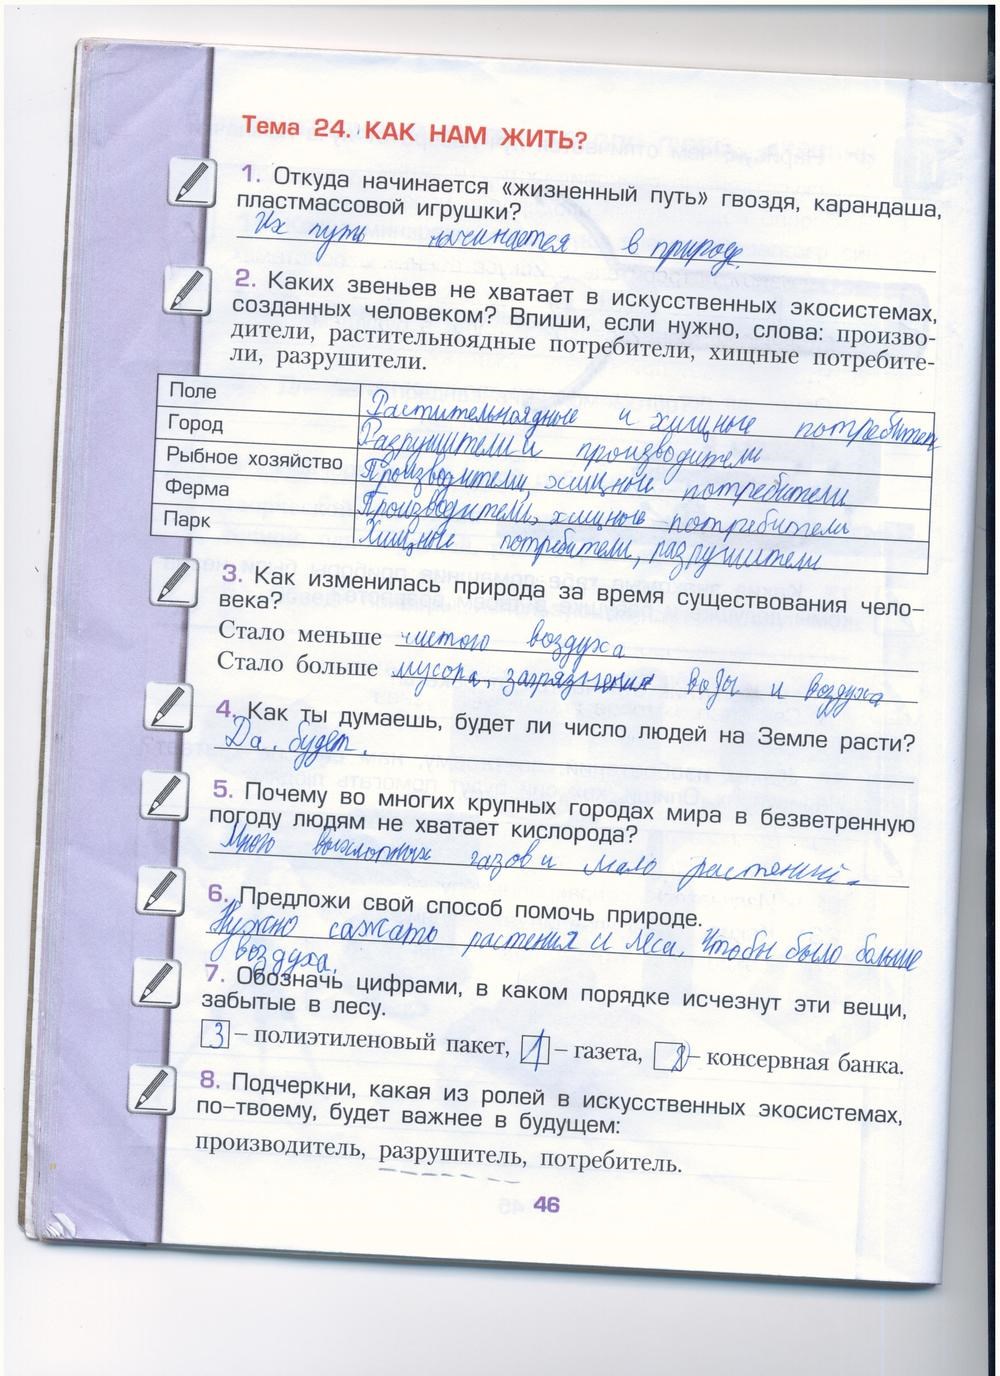 Тема 24. КАК НАМ ЖИТЬ?
1. Откуда начинается «жизненный путь» гвоздя, карандаша,
пластмассовой игрушки?
Их путь начинается в природе.
2. Каких звеньев не хватает в искусственных экосистемах,
созданных человеком? Впиши, если нужно, слова: произво-
дители, растительноядные потребители, хищные потребите-
ли, разрушители.
Поле Растительноядные и хищные потребител
Город Разрушители и производители
Рыбное хозяйство Производители, хищные потребители
Ферма Производители, хищные потребители
Парк Хищные потребители, разрушители
3. Как изменилась природа за время существования чело-
века?
Стало меньше чистого воздуха
Стало больше мусора, загрязнения воды и воздуха
4. Как ты думаешь, будет ли число людей на Земле расти?
Да, будет.
5. Почему во многих крупных городах мира в безветренную
погоду людям не хватает кислорода?
Много выхлопных газов и мало растений.
6. Предложи свой способ помочь природе.
Нужно сажать растения и леса. Чтобы было больше
воздуха.
7. Обозначь цифрами, в каком порядке исчезнут эти вещи,
забытые в лесу.
3 – полиэтиленовый пакет, 1 – газета, – консервная банка.
8. Подчеркни, какая из ролей в искусственных экосистемах,
по-твоему, будет важнее в будущем:
производитель, разрушитель, потребитель.
46